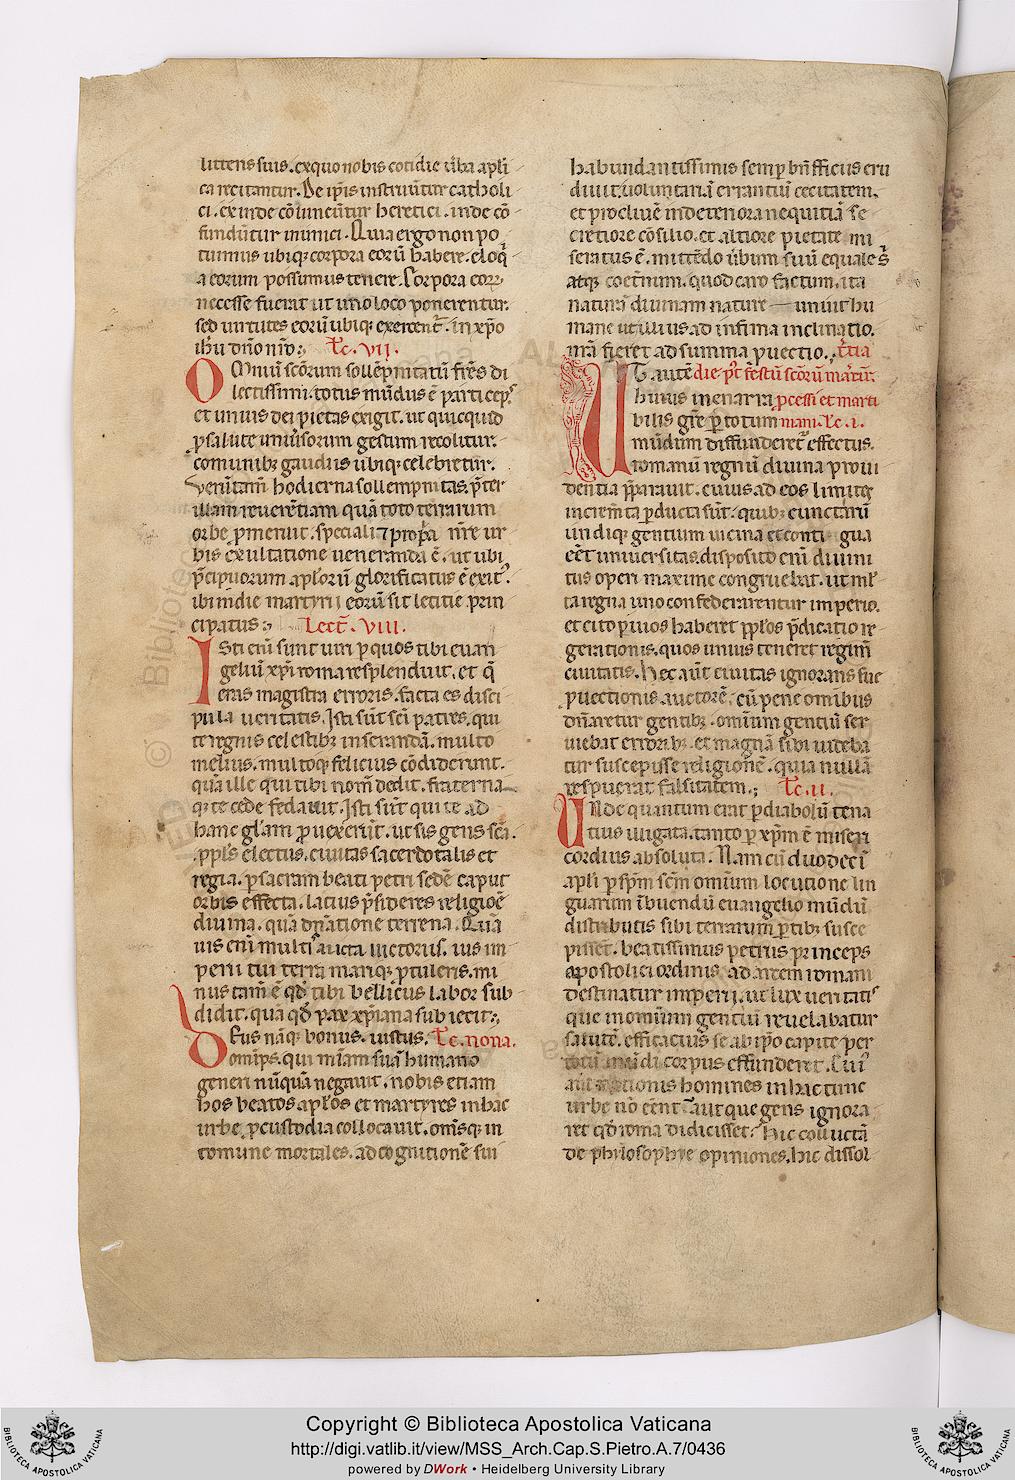 litteris suis. ex quo nobis cotidie u̅ba apl̅i
ca recitantur. De ip̅is instruu̅tur catholi
ci. ex inde co̅uincu̅tur heretici. inde co̅
fundu̅tur inimici. Quia ergo non po
tuimus ubiq; corpora eoru̅ habere. eloq̅
a eorum possumus tenere. Corpora eorꝝ
necesse fuerat ut uno loco ponerentur.
sed uirtutes eoru̅ ubiq; exercent̅. in xp̅o
ih̅u dn̅o nr̅o. Lc̅. VII.
Omniu̅ sc̅orum solle̅pnitatu̅ fr̅es di
lectissimi. totus mu̅dus e̅ particeps
et unius dei pietas exigit. ut quicquid
ꝓ salute uniu̅sorum gestum recolitur.
comunibꝫ gaudiis ubiq; celebretur.
Veru̅tam̅ hodierna sollempnitas. p̅ter
illam reuere̅tiam qua̅ toto terrarum
orbe ꝓmeruit. speciali ⁊ propa̅ nr̅e ur
bis exultatione ueneranda e̅. ut ubi
p̅cipuorum apl̅oru̅ glorificatus e̅ exit9.
ibi in die martyrij eoru̅ sit letitie prin
cipatus. Lect̅. VIII.
Isti eni̅ sunt uiri ꝑ quos tibi euan
geliu̅ xp̅i roma resplenduit. et q̅
eras magistra erroris. facta es disci
pula ueritatis. Isti su̅t sc̅i patres. qui
te regnis celestibꝫ inseranda̅. multo
melius. multoq; felicius co̅diderunt.
qua̅ ille qui tibi nom̅ dedit. fraterna
q; te cede fedauit. Isti su̅t qui te ad
hanc gl̅am ꝓuexeru̅t. ut sis gens sc̅a.
ppl̅s electus. ciuitas sacerdotalis et
regia. ꝑ sacram beati petri sede̅ caput
orbis effecta. latius p̅sideres religioe̅
diuina. qua̅ dn̅atione terrena. Qua̅
uis eni̅ multis aucta uictoriis. ius im
perii tui terra mariq; ꝓtuleris. mi
nus tam̅ e̅ qd̅ tibi bellicus labor sub
didit. qua̅ qd̅ pax xp̅iana subiecit.
Deus na̅q; bonus. iustus. Lc̅. nona.
omip̅s. qui mi̅am sua̅ humano
generi nu̅qua̅ negauit. nobis etiam
hos beatos apl̅os et martyres in hac
urbe ꝓ custodia collocauit. omi̅sq; in
comune mortales. ad cognitione̅ sui
habundantissimis semp̅ bn̅fficiis eru
diuit. uoluntaria̅ errantiu̅ cecitatem.
et procliue̅ in deteriora nequitia̅ se
cretiore co̅silio. et altiore pietate mi
seratus e̅. mitte̅do u̅bum suu̅ equale s̅
atq; coet̅num. quod caro factum. ita
natura̅ diuinam nature uniuit hu
mane ut illius ad infima inclinatio.
n̅ra̅ fieret ad summa ꝓuectio. t̅tia
Ut aute̅ die p̅t festu̅ sc̅oru̅ mar̅tm̅.
huius inenarra ꝓcessi et marti
bilis gr̅e ꝑ totum niani. Lc̅. i.
mu̅dum diffunderet̅ effectus.
romanu̅ regnu̅ diuina proui
dentia p̅parauit. cuius ad eos limites
increm̅ta ꝑducta su̅t. quibꝫ cunctaru̅
undiq; gentium uicina et contigua
ee̅t uniuersitas. disposito eni̅ diuini
tus operi maxime congruebat. ut ml̅
ta regna uno confederarentur imperio.
et cito ꝑuios haberet pp̅los p̅dicatio re
gerationis. quos unius teneret regim̅
ciuitatis. Hec aut̅ ciuitas ignorans sue
ꝓuectionis auctore̅. cu̅ pene omi̅bus
dn̅aretur gentibꝫ. omi̅um gentiu̅ ser
uiebat erroribꝫ. et magna̅ sibi uideba
tur suscepisse religione̅. quia nulla̅
respuerat falsitatem. Lc̅. ii.
Unde quantum erat ꝑ diabolu̅ tena
tius illigata. tanto ꝑ xp̅m e̅ miseri
cordius absoluta. Nam cu̅ duodeci̅
apl̅i ꝑ sp̅m sc̅m omi̅um locutione lin
guarum i̅buendu̅ euangelio mu̅du̅
distributis sibi terrarum ꝑtibꝫ susce
pissent. beatissimus petrus princeps
apostolici ordinis. ad arcem romani
destinatur imperij. ut lux ueritatis
que in omi̅um gentiu̅ reuelabatur
salute̅. efficacius se ab ip̅o capite per
totu̅ mu̅di corpus effunderet. Cui9
aut̅ nationis homines in hac tunc
urbe no̅ ee̅nt. aut que gens ignora
ret qd̅ roma didicisset. Hic co̅culcta̅
de philosophye opiniones. hic dissol
Copyright © Biblioteca Apostolica Vaticana
http://digi.vatlib.it/view/MSS_Arch.Cap.S.Pietro.A.7/0436
powered by DWork • Heidelberg University Library
BIBLIOTECA APOSTOLICA VATICANA
BIBLIOTECA APOSTOLICA VATICANA